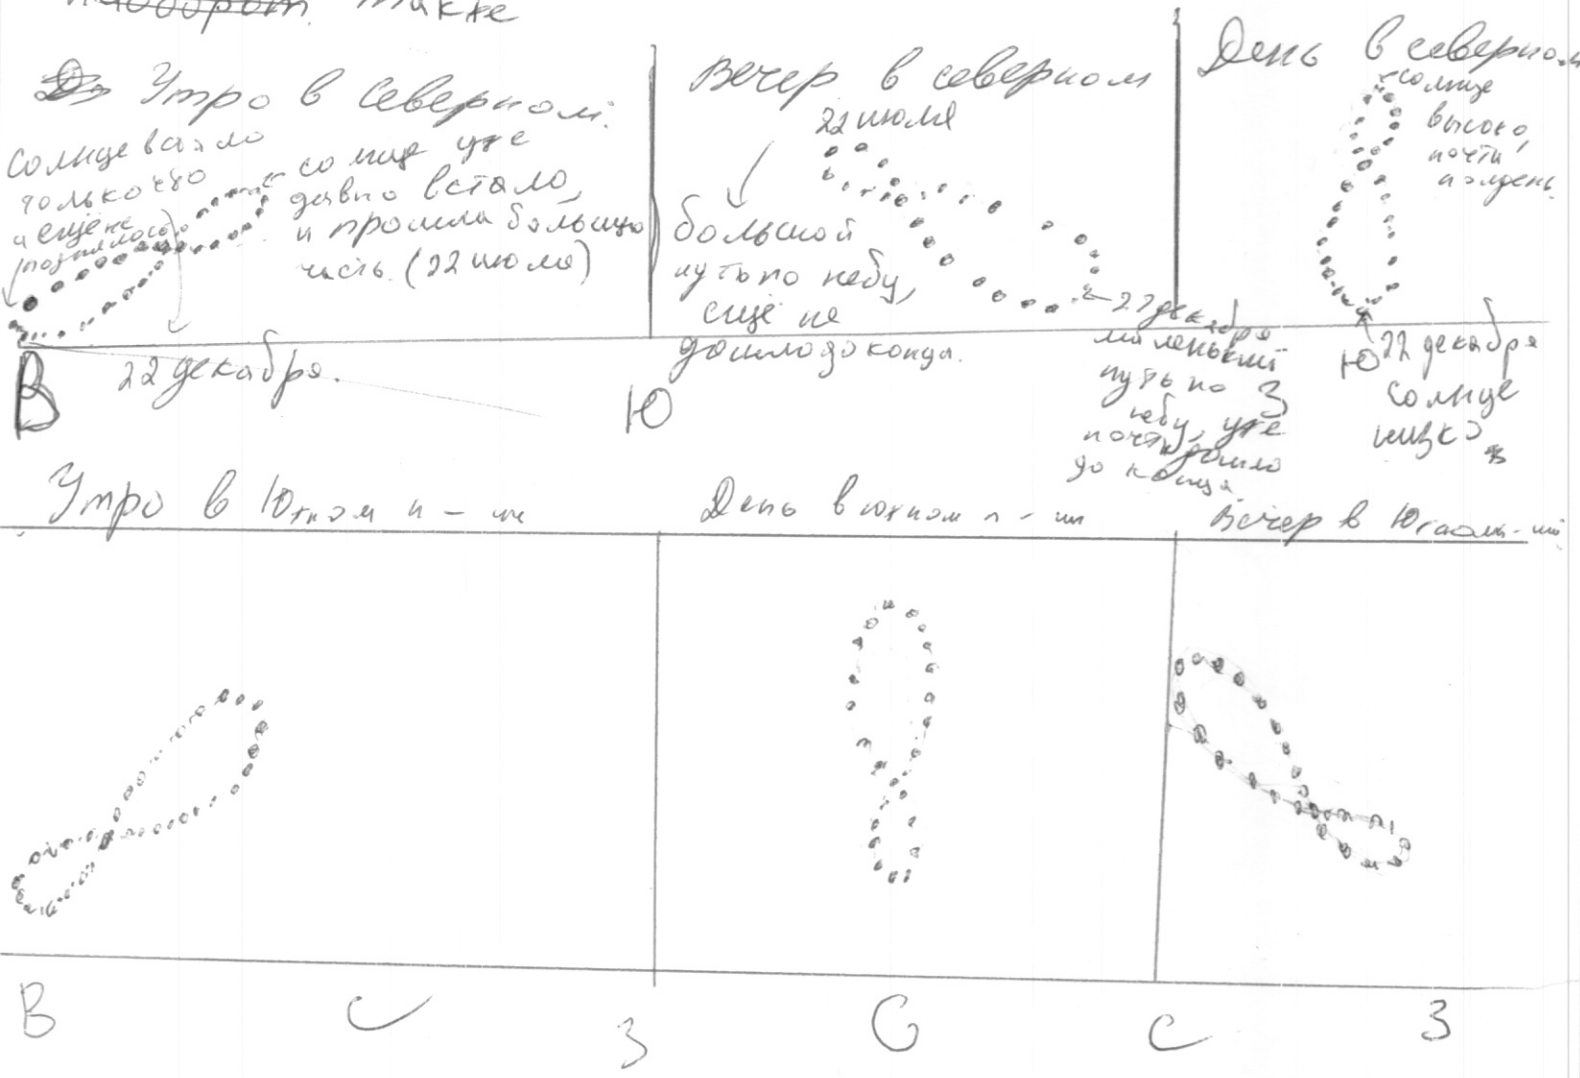 наоборот. также
Утро в северном.
Солнце встало
только что
и ещё не
поднялось
солнце уже
давно встало,
и прошла большую
часть. (22 июля)
22 декабря.
В
Вечер в северном
22 июля
большой
путь по небу,
ещё не
дошло до конца.
Ю
22 декабря
маленький
путь по
небу, уже
почти дошло
до конца
З
День в северном
солнце
высоко,
почти
полдень.
Ю
22 декабря
солнце
низко
Утро в Южном п-ии
День в южном п-ии
Вечер в Южном п-ии
В
С
З
С
С
З